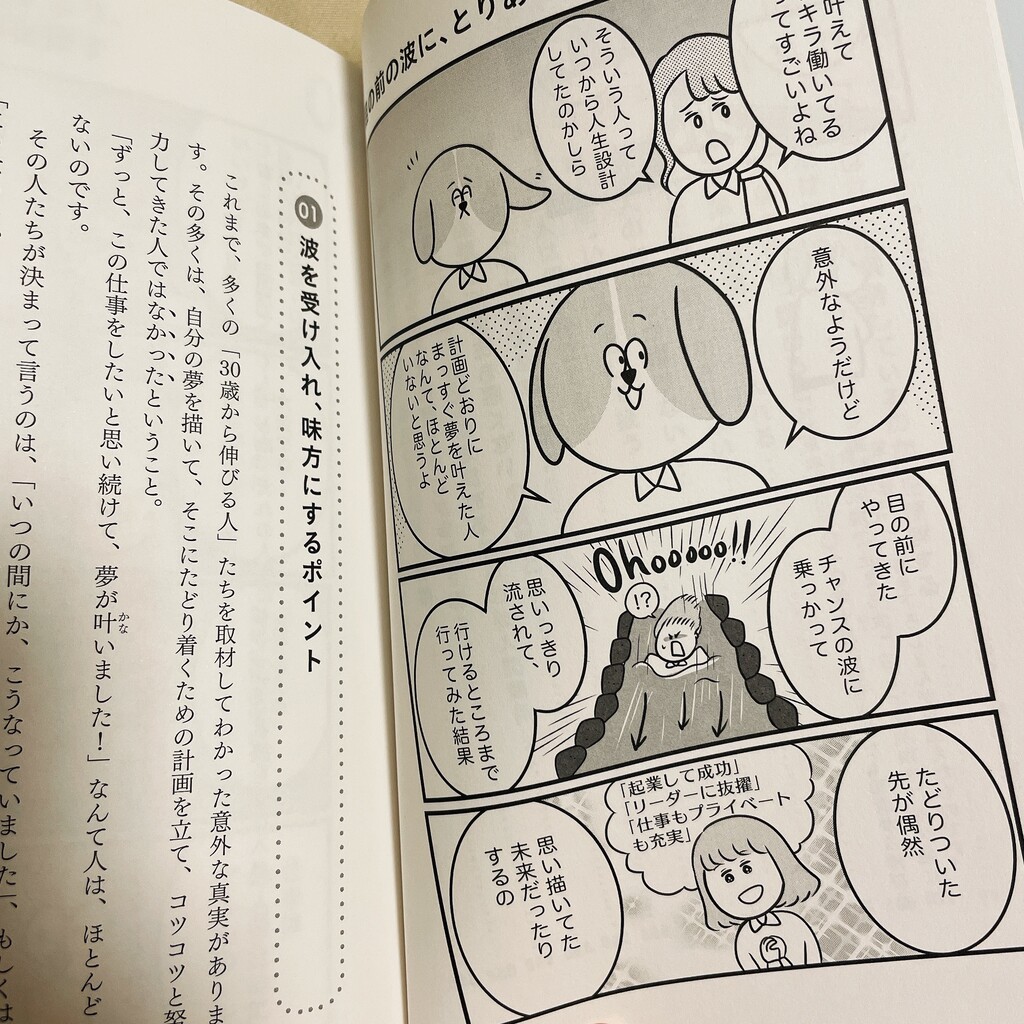 の前の波に、とりあ
叶えて
キラ働いてる
ってすごいよね
そういう人って
いつから人生設計
してたのかしら
意外なようだけど
計画どおりに
まっすぐ夢を叶えた人
なんて、ほとんど
いないと思うよ
目の前に
やってきた
チャンスの波に
乗っかって
Ohooooo!!
!?
思いっきり
流されて、
行けるところまで
行ってみた結果
たどりついた
先が偶然
「起業して成功」
「リーダーに抜擢」
「仕事もプライベート
も充実」
思い描いてた
未来だったり
するの
01 波を受け入れ、味方にするポイント
これまで、多くの「30歳から伸びる人」たちを取材してわかった意外な真実がありま
す。その多くは、自分の夢を描いて、そこにたどり着くための計画を立て、コツコツと努
力してきた人ではなかったということ。
「ずっと、この仕事をしたいと思い続けて、夢が叶いました！」なんて人は、ほとんど
かな
ないのです。
その人たちが決まって言うのは、「いつの間にか、こうなっていました」、もしくは